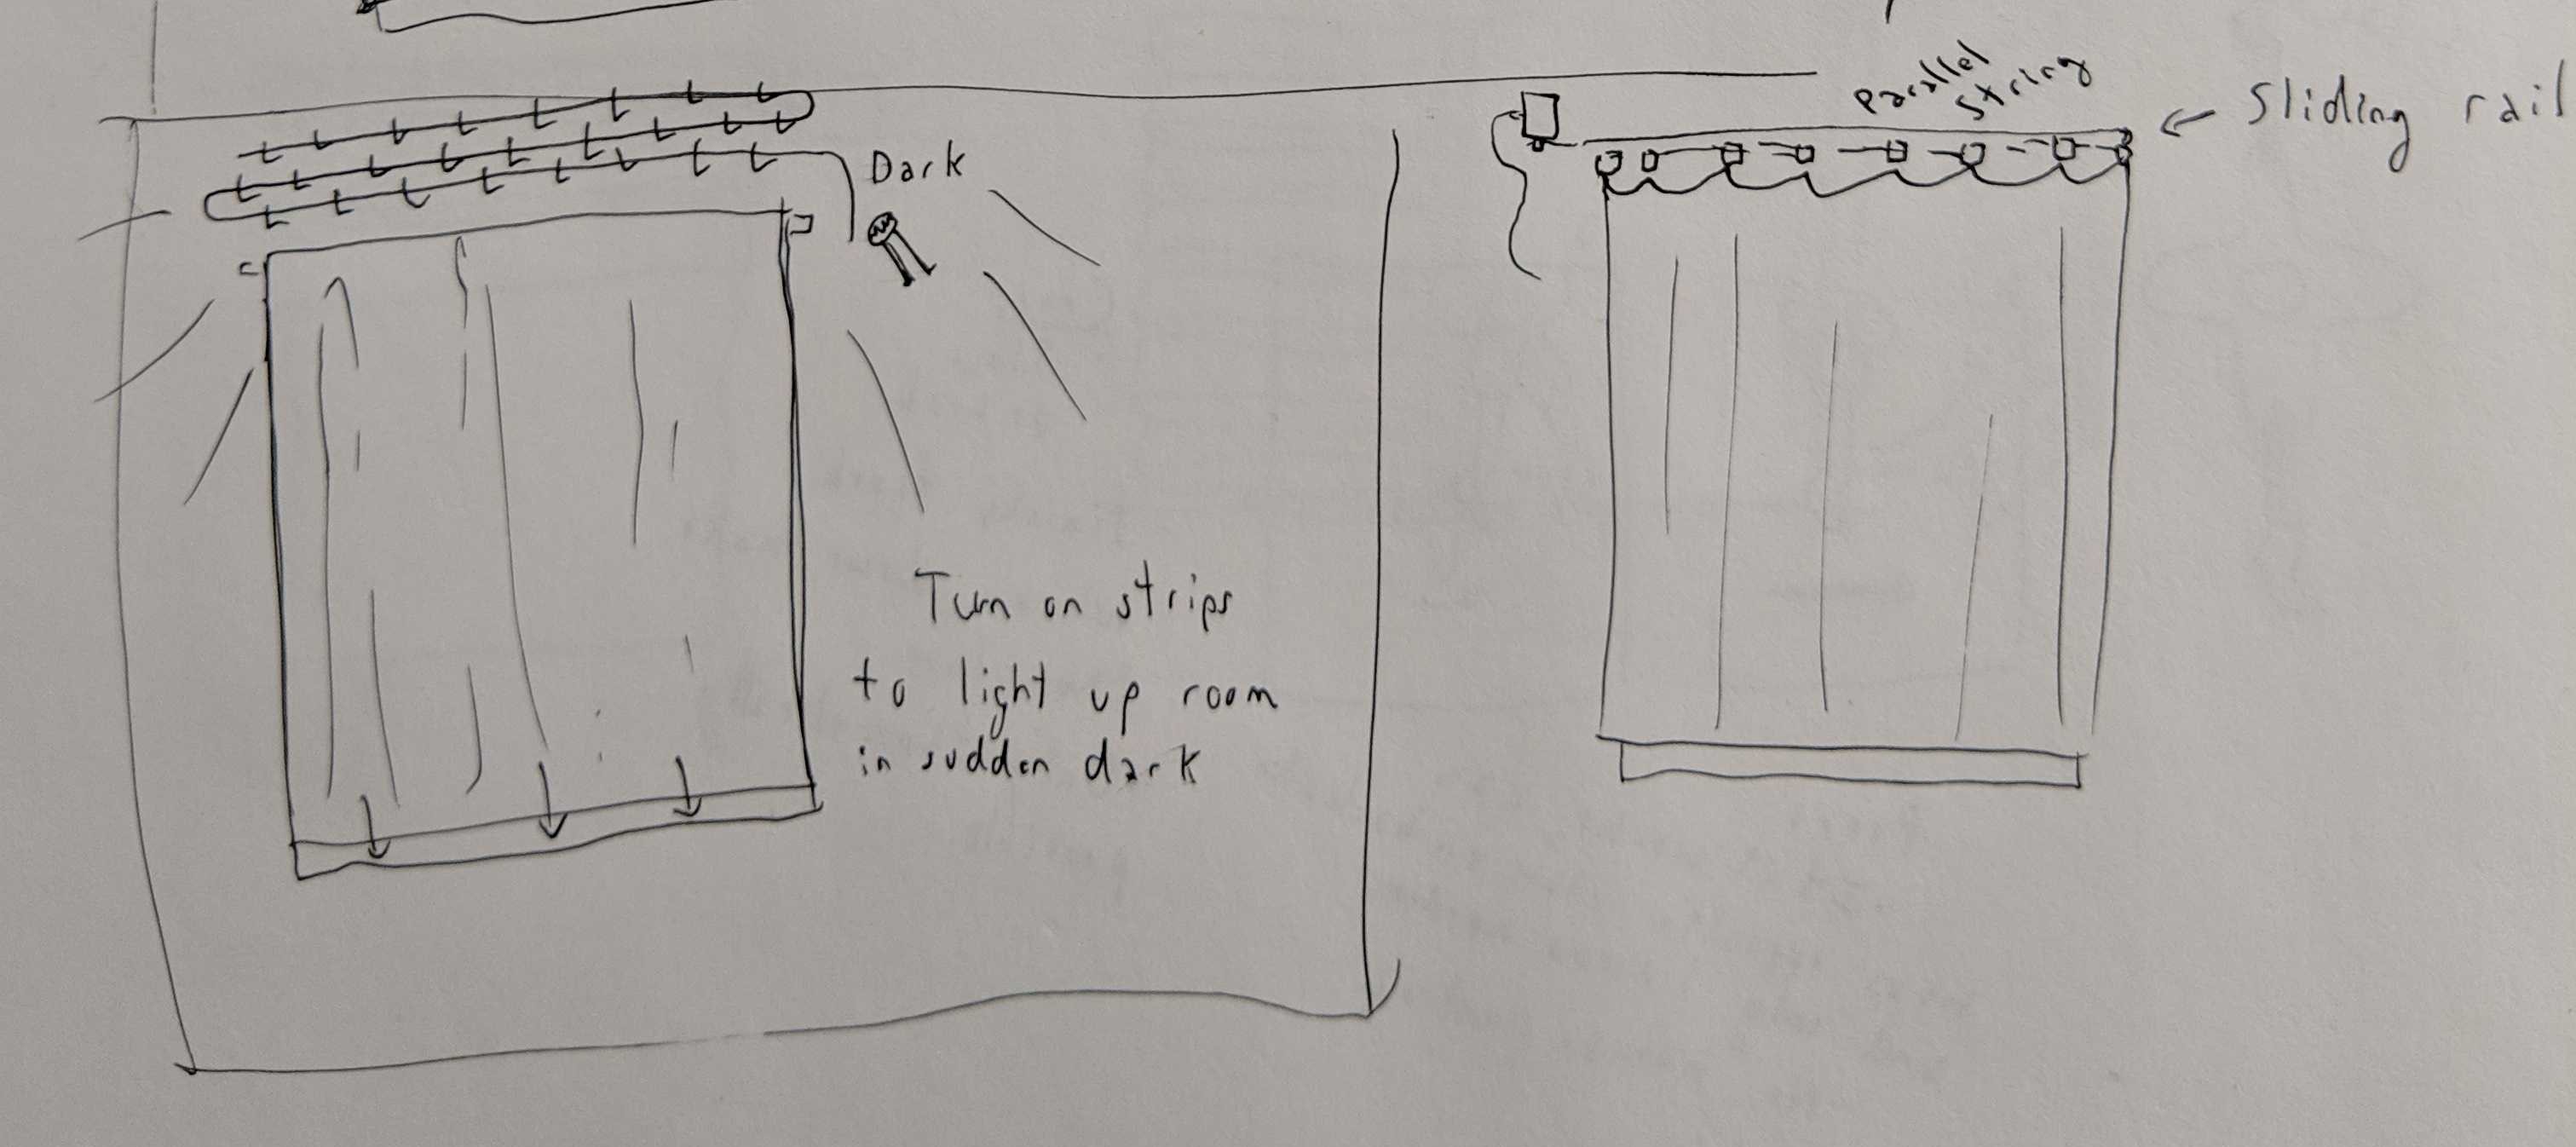 Dark
Turn on strips
to light up room
in sudden dark
Parallel
string
Sliding rail